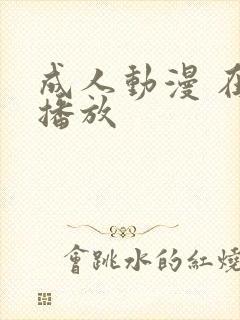 成人動漫
播放
會跳水的紅燒